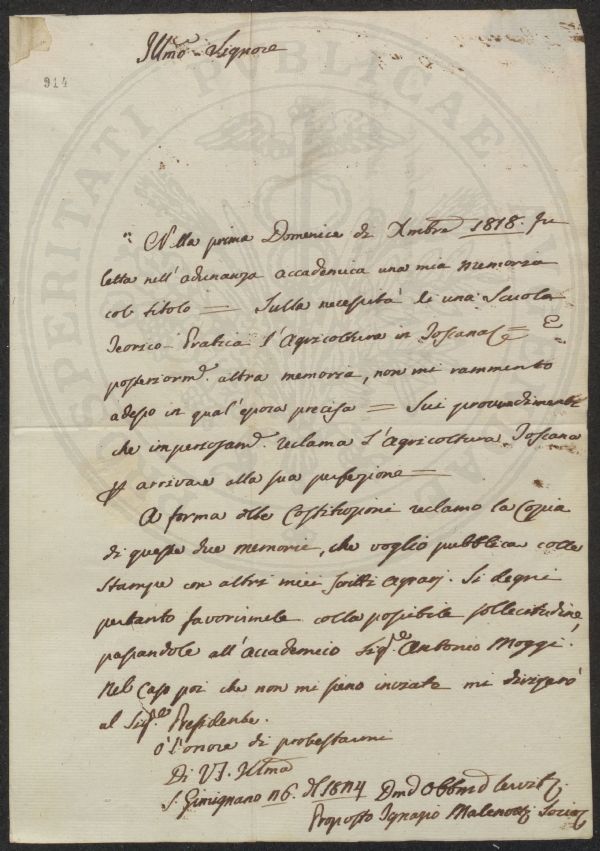 Illmo Signore
914
Nella prima Domenica di Xmbre 1818. fu
letta nell'adunanza accademica una mia memoria
col titolo = Sulla necessità di una Scuola
Teorico-Pratica d'Agricoltura in Toscana = E
posteriormte. altra memoria, non mi rammento
adesso in qual'epoca precisa = Sui provvedimenti
che imperiosamte. reclama l'Agricoltura Toscana
p arrivare alla sua perfezione =
A forma delle Costituzioni reclamo la Copia
di queste due memorie, che voglio pubblicar colle
stampe con altri miei scritti agrarj. Si degni
pertanto favorirmele colla possibile sollecitudine,
passandole all'Accademico Sigre. Antonio Moggi.
Nel caso poi che non mi sieno inviate mi dirigerò
al Sigre. Presidente.
O l'onore di protestarmi
Di VS. Illma
S. Gimignano
Proposto Ignazio Malenotti Socio
PROSPERITATI PUBLICAE